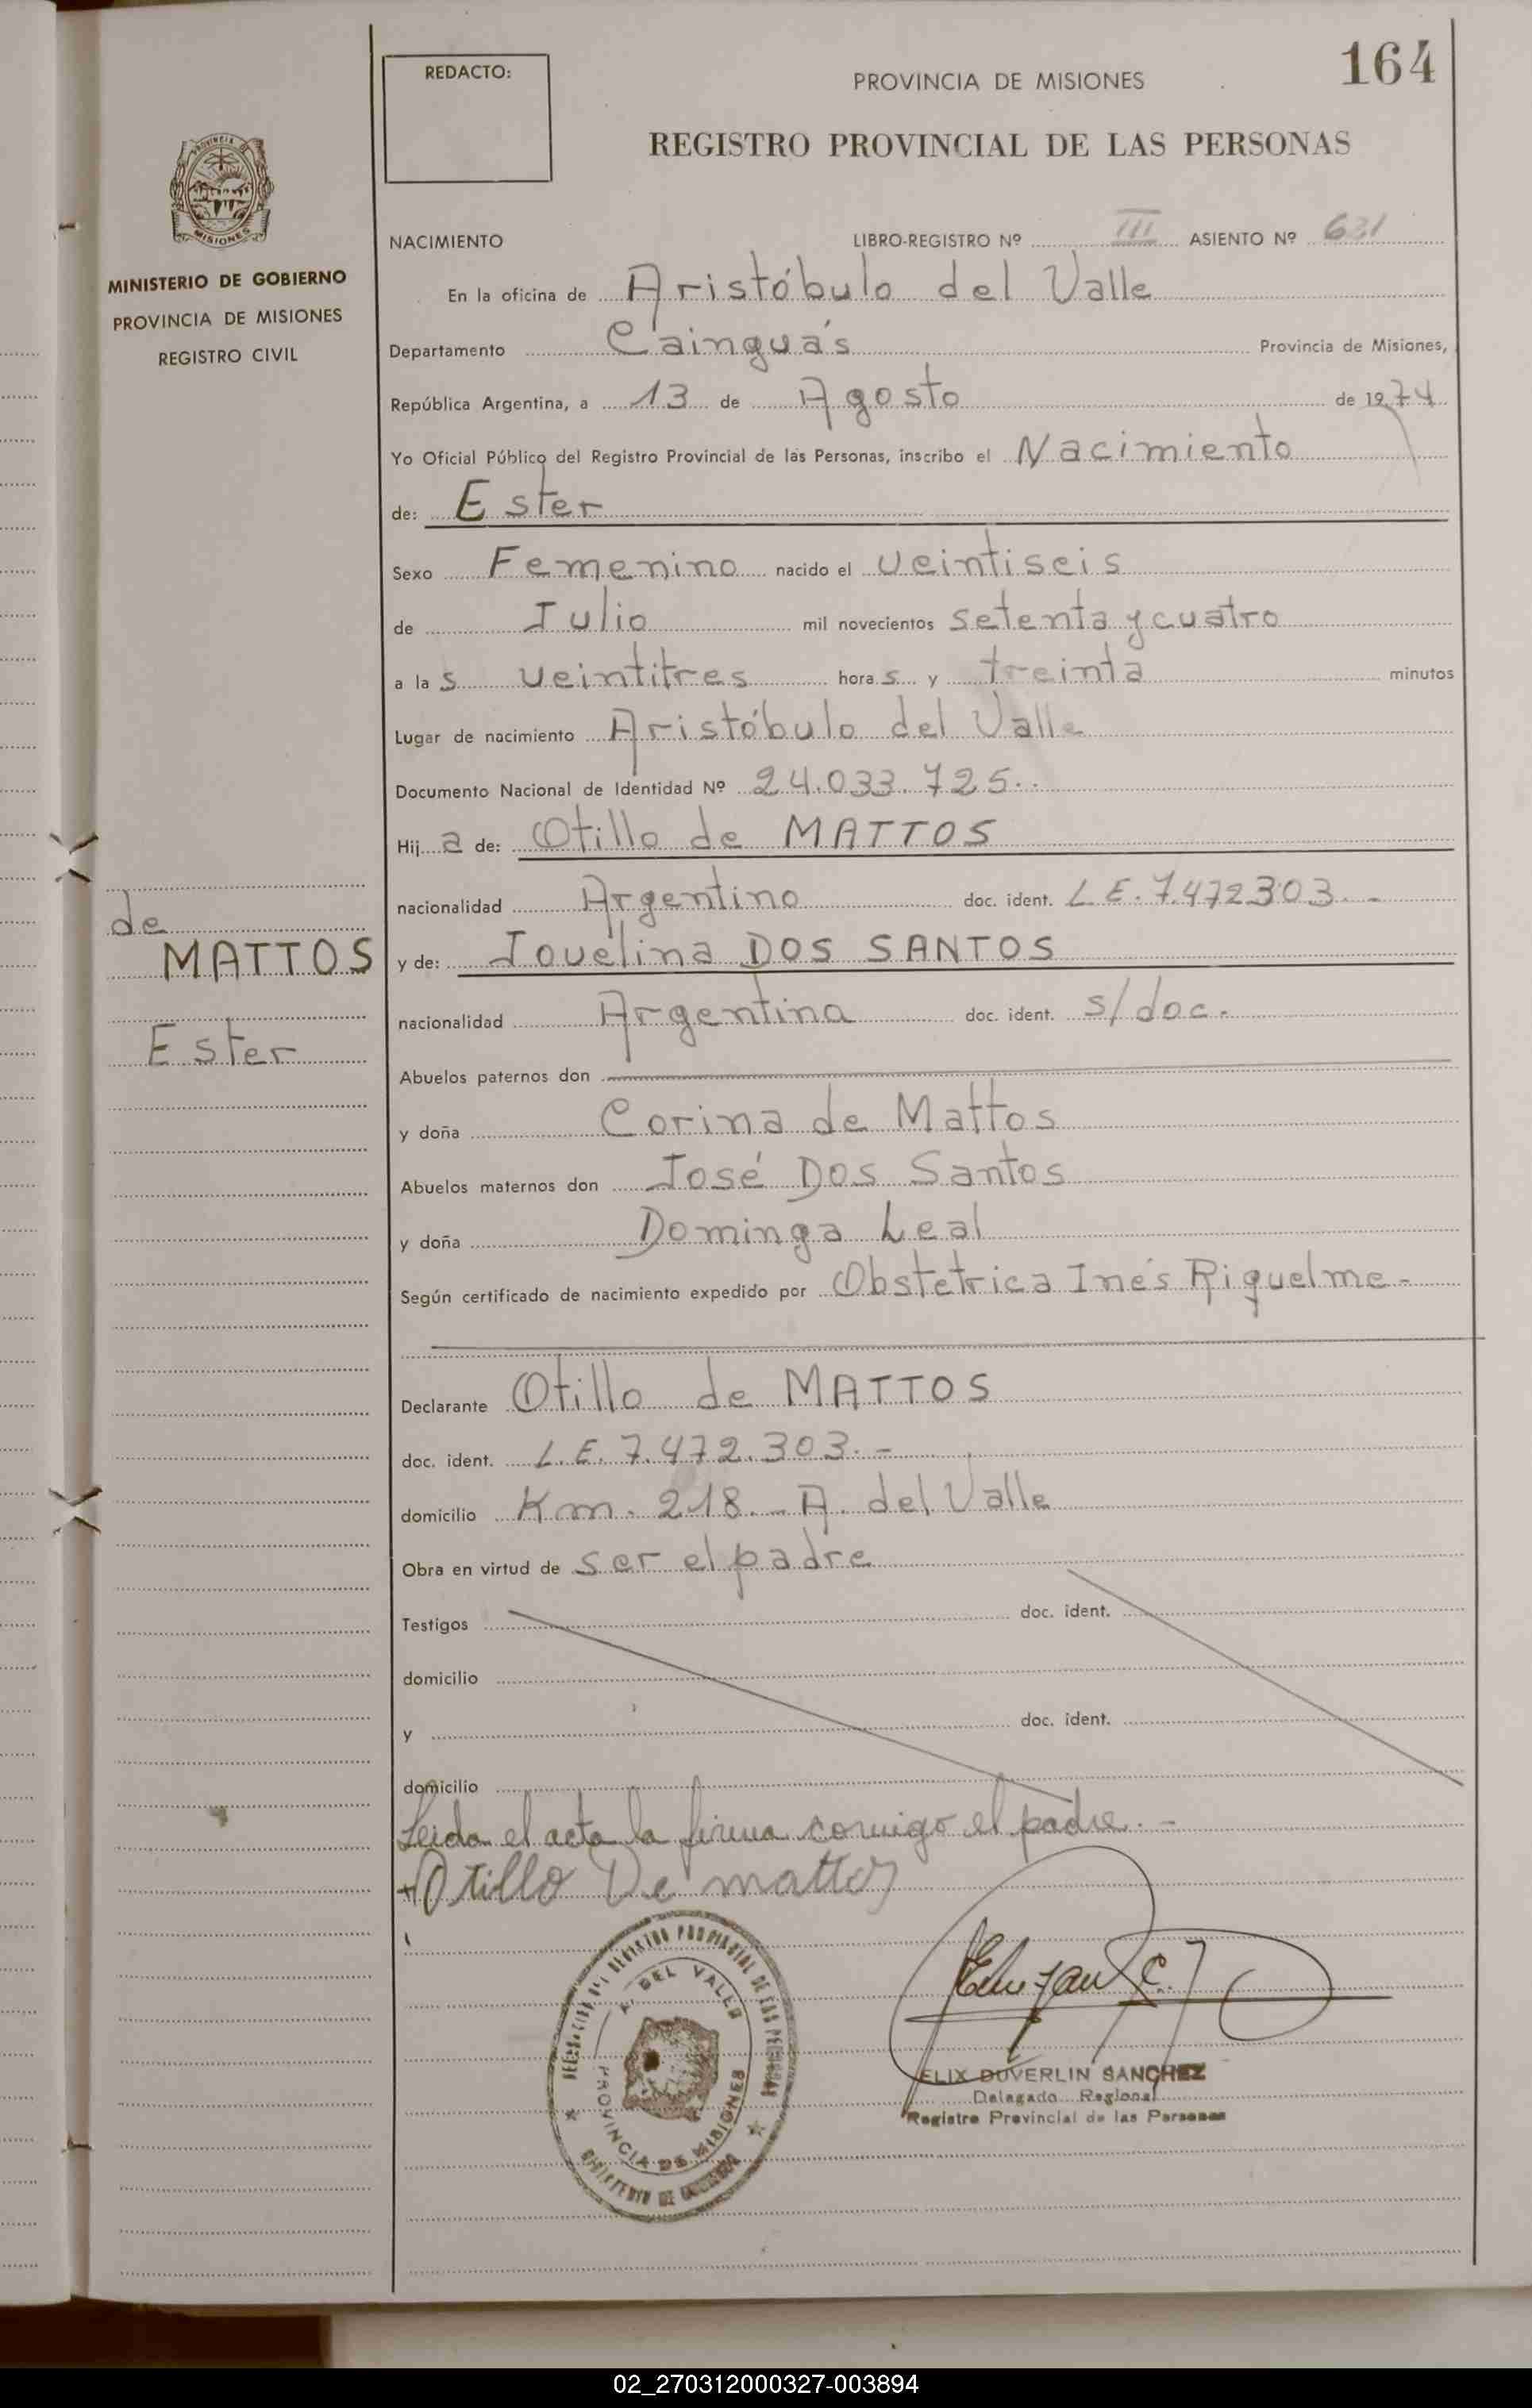 164
REDACTO:
PROVINCIA DE MISIONES
REGISTRO PROVINCIAL DE LAS PERSONAS
MISIONES
MINISTERIO DE GOBIERNO
PROVINCIA DE MISIONES
REGISTRO CIVIL
NACIMIENTO LIBRO-REGISTRO Nº III ASIENTO Nº 631
En la oficina de Aristóbulo del Valle
Departamento Cainguás Provincia de Misiones,
República Argentina, a 13 de Agosto de 1974
Yo Oficial Público del Registro Provincial de las Personas, inscribo el Nacimiento
de: Ester
Sexo Femenino nacido el veintiseis
de Julio mil novecientos setenta y cuatro
a las veintitres horas y treinta minutos
Lugar de nacimiento Aristóbulo del Valle
Documento Nacional de Identidad Nº 24.033.725..
Hija de: Otillo de MATTOS
nacionalidad Argentino doc. ident. L.E. 7.472303.-
de
MATTOS
y de: Jovelina DOS SANTOS
nacionalidad Argentina doc. ident. s/doc.
Ester
Abuelos paternos don
y doña Corina de Mattos
Abuelos maternos don José Dos Santos
y doña Dominga Leal
Según certificado de nacimiento expedido por Obstetrica Inés Riquelme-
Declarante Otillo de MATTOS
doc. ident. L.E. 7.472.303.-
domicilio Km. 218.- A. del Valle
Obra en virtud de ser el padre
Testigos doc. ident.
domicilio
y doc. ident.
domicilio
Leida el acta la firma conmigo el padre.-
+Otillo De mattos
REGISTRO PROVINCIAL DE LAS PERSONAS
A. DEL VALLE
PROVINCIA DE MISIONES
ELIX DUVERLIN SANCHEZ
Delegado Regional
Registro Provincial de las Personas
02_270312000327-003894